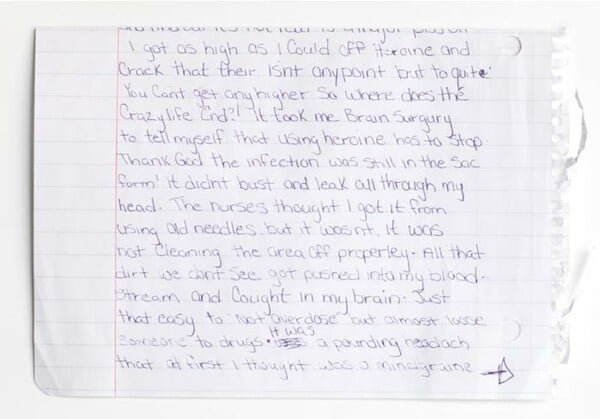 I got as high as I Could off Heroine and
Crack that their isnt any point but to quite
You Cant get any higher So where does the
Crazy life End?! It took me Brain Surgury
to tell myself that using heroine has to Stop.
Thank God the infection was still in the Sac
form' it didnt bust and leak all through my
head. The nurses thought I got it from
using old needles but it wasnt. It was
not cleaning the area off properley. All that
dirt we cant see got pushed into my blood.
Stream and Cought in my brain. Just
that easy to "not overdose" but almost loose
someone to drugs. It was a pounding headach
that at first I thought was a mindgraine →